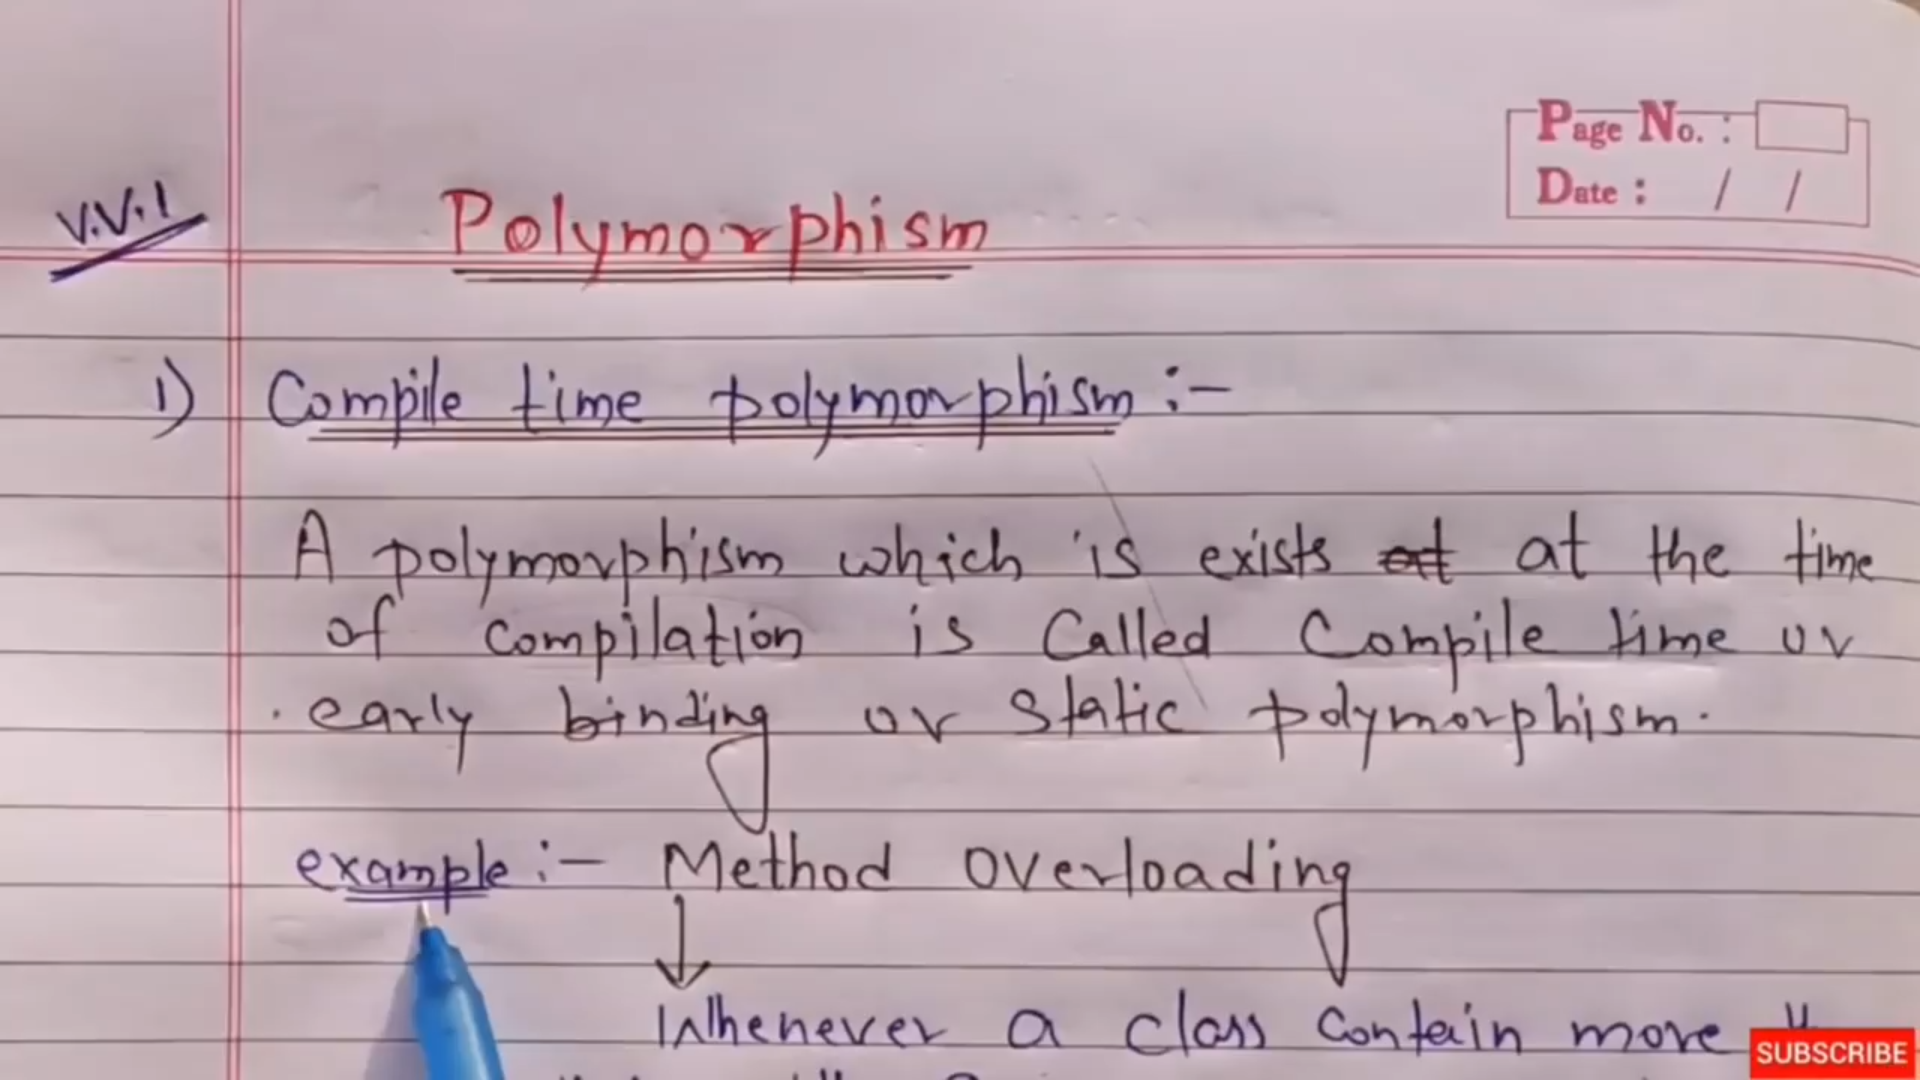 Page No. :
Date : / /
V.V.I
Polymorphism
1) Compile time polymorphism :-
A polymorphism which is exists at at the time
of compilation is called Compile time or
early binding or Static polymorphism.
example :- Method Overloading
↓
Whenever a class contain more
SUBSCRIBE